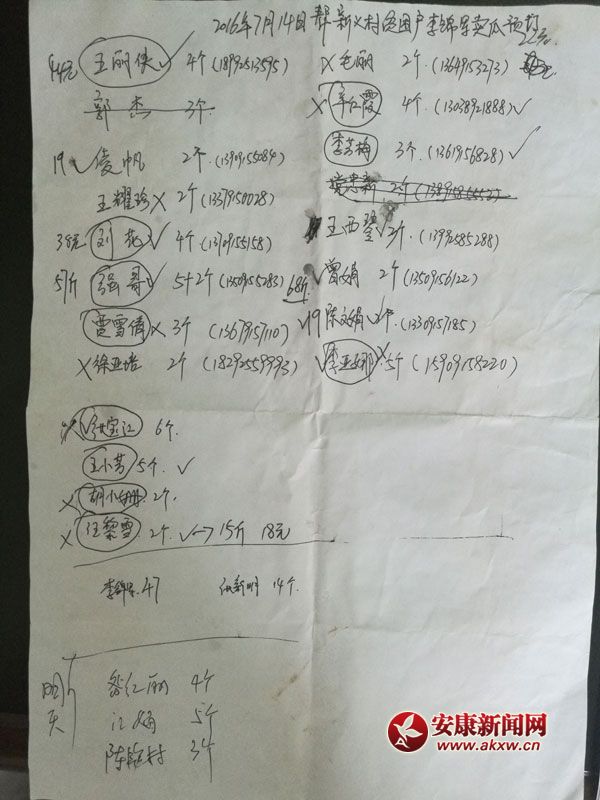 2016年7月14日帮新义村贫困户李锦军卖瓜预订
22元
44元 王丽侠 ✓ 4个(18992513595)
郭杰 3个
19 ✓ 凌帆 2个(13909155084)
王耀珍 × 2个(13379150028)
38元 刘花 ✓ 4个(13709155158)
57斤 强哥 ✓ 5+2个(13509155283)
68斤
贾雪倩 × 3个(13679157110)
× 徐亚培 2个(18292559993)
× 毛丽 2个(13649153273)
× 辛红霞 4个(13038921888) ✓
李芳梅 3个(13619156828) ✓
王西 2个(13992585288)
✓ 曾娟 2个(13509156122)
19 陈文娟 ✓ 2个(13309157185)
✓ 李亚娜 × 5个(15909158220)
张宝江 6个
王小芳 5个 ✓
× 胡小册 2个
× 汪黎雪 2个 ✓→15斤 18元
李锦军 47 伍新明 14个
明天
红丽 4个
江娟 5个
陈 3个
安康新闻网
www.akxw.cn